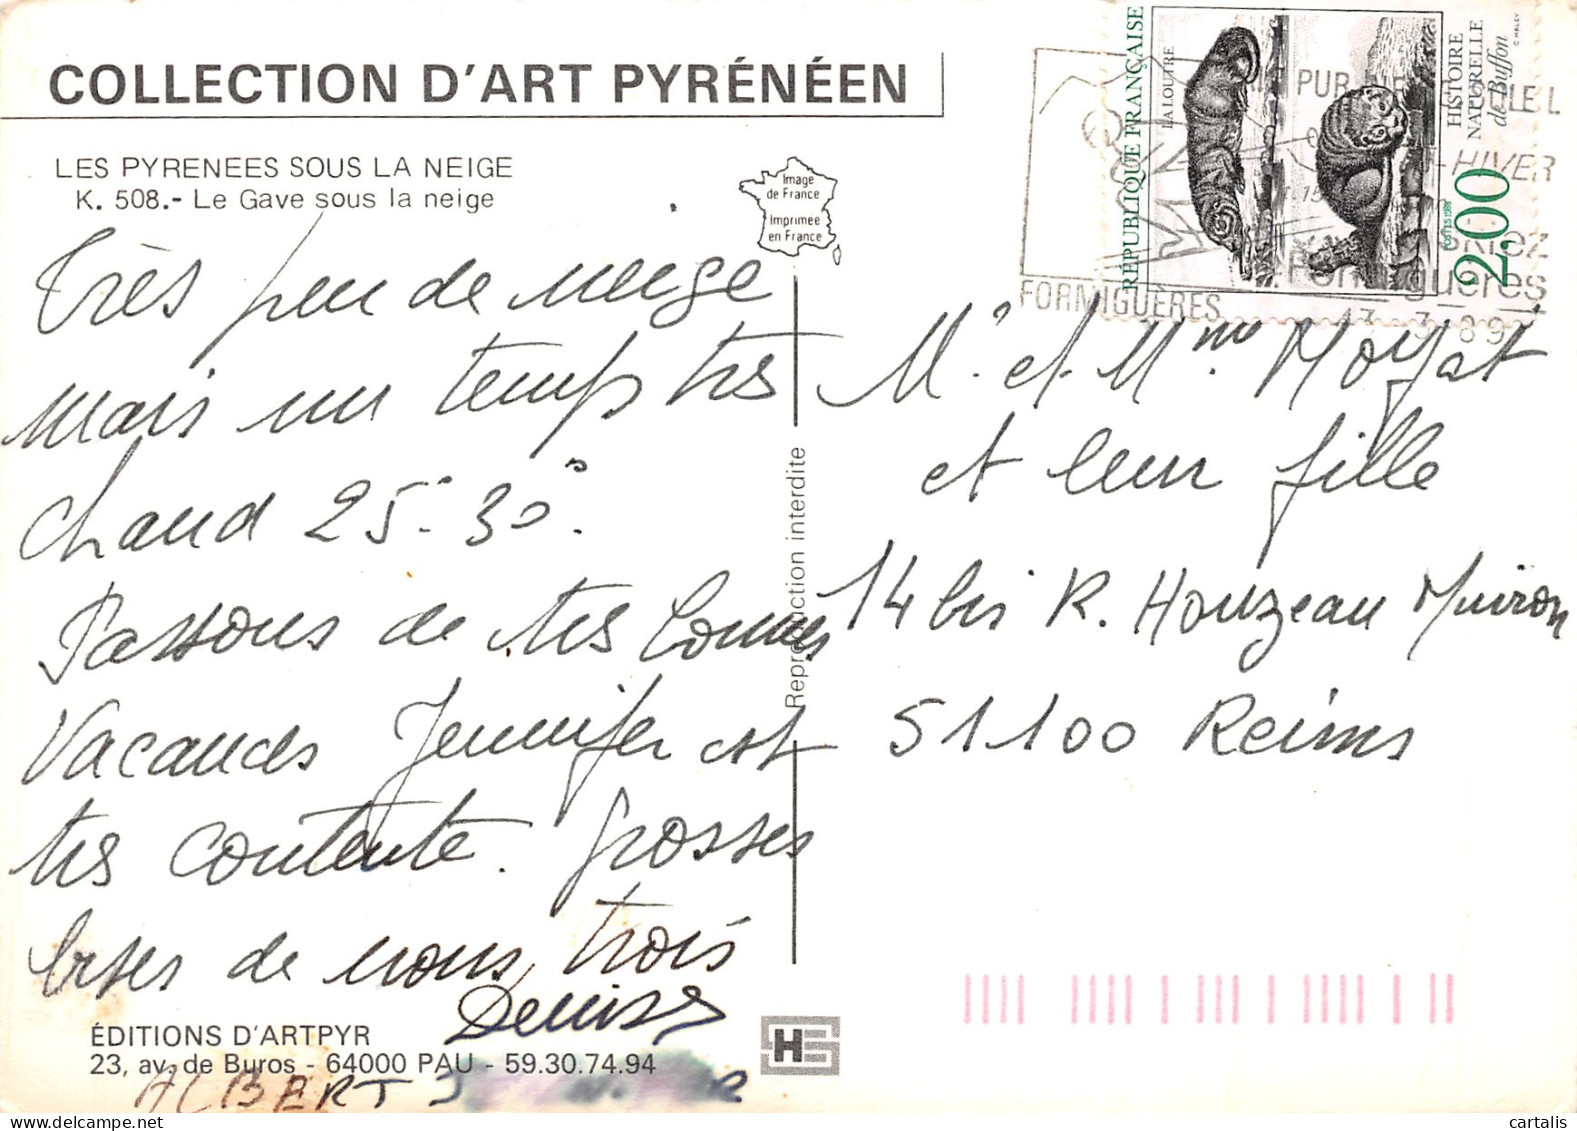 COLLECTION D'ART PYRÉNÉEN
LES PYRENEES SOUS LA NEIGE
K. 508.- Le Gave sous la neige
Très peu de neige
mais un temps très
chaud 25°-30°.
Passons de très bonnes
Vacances Jennifer est
très contente. Grosses
bises de nous trois
Denise
ALBERT
ÉDITIONS D'ARTPYR
23, av. de Buros - 64000 PAU - 59.30.74.94
Image
de France
Imprimée
en France
Reproduction interdite
HS
RÉPUBLIQUE FRANÇAISE
LA LOUTRE
HISTOIRE
NATURELLE
de Buffon
2,00
POSTES 1988
FORMIGUÈRES
HIVER
Formiguères
13-3-89
Mr et Mme
et leur fille
14 bis R. Houzeau Muiron
51100 Reims
cartalis